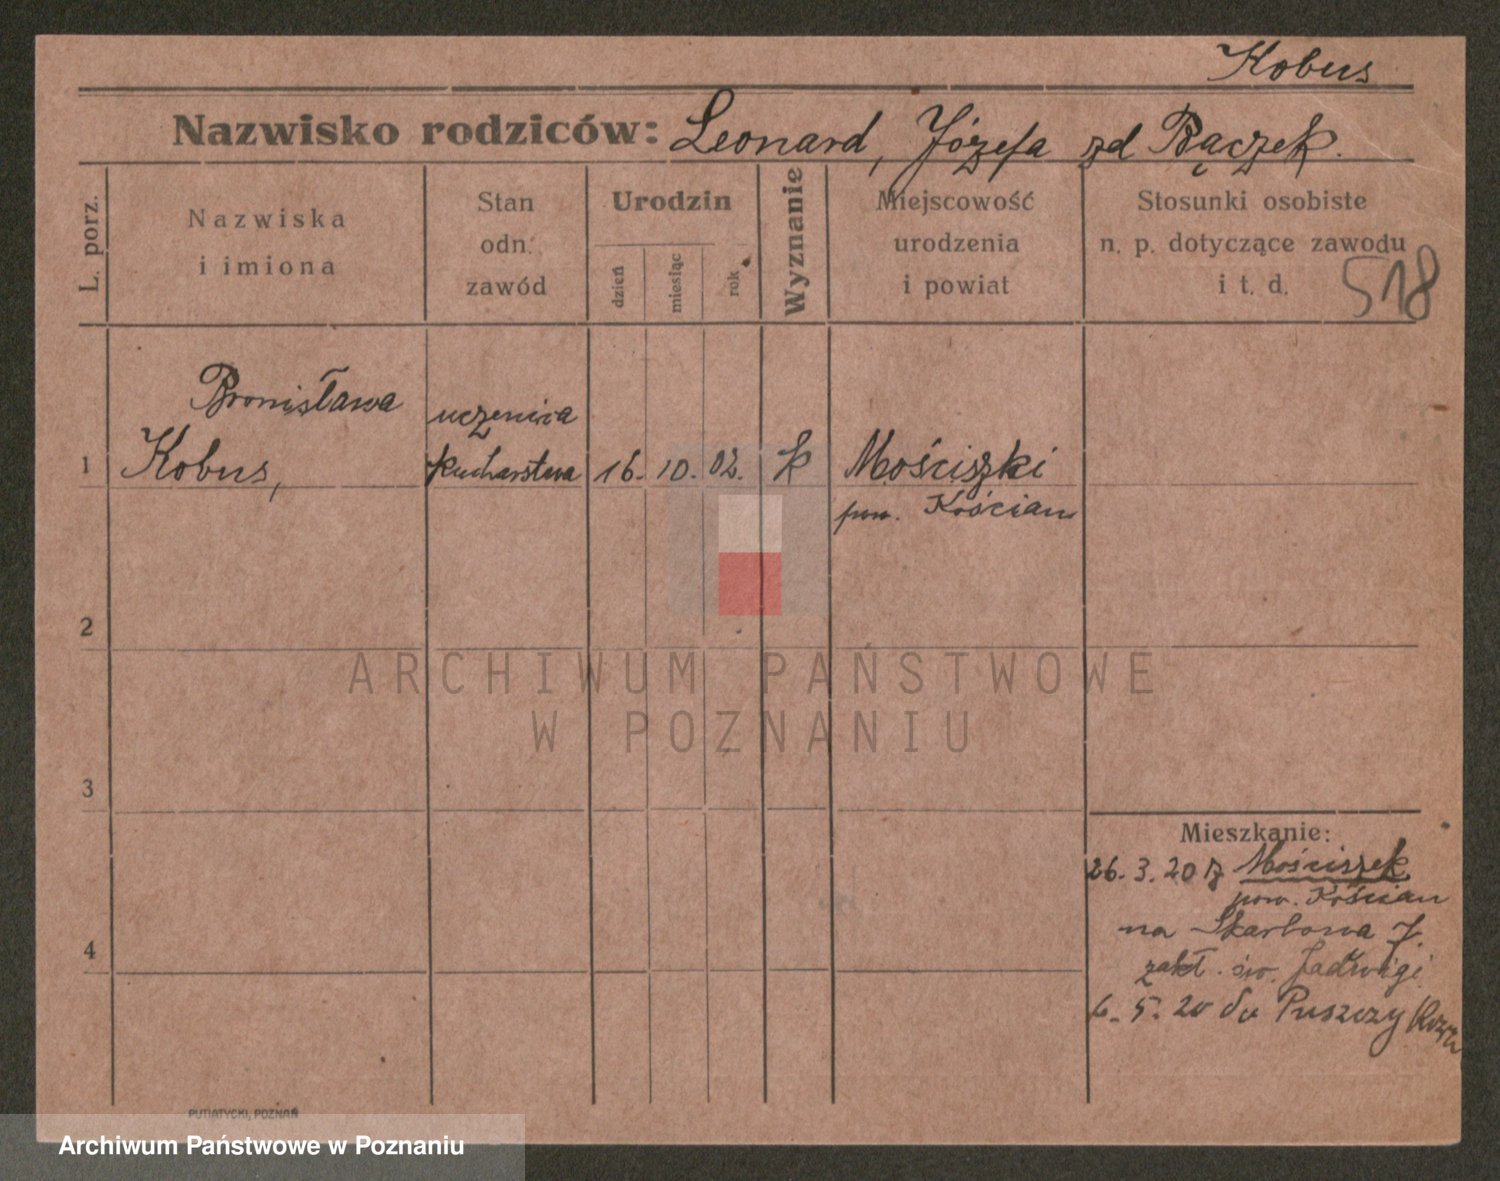 Kobus
Nazwisko rodziców: Leonard, Józefa zd Bączek.
L. porz.
Nazwiska
i imiona
Stan
odn.
zawód
Urodzin
dzień
miesiąc
rok
Wyznanie
Miejscowość
urodzenia
i powiat
Stosunki osobiste
n. p. dotyczące zawodu
i t. d.
518
1
Bronisława
Kobus,
uczenica
kucharstwa
16. 10. 02.
k
Mościszki
pow. Kościan
2
3
4
Mieszkanie:
26. 3. 20 z Mościszek
pow. Kościan
na Skarbowa 7.
zakł. św. Jadwigi
6. 5. 20 do Puszczy
ARCHIWUM PAŃSTWOWE
W POZNANIU
PUTIATYCKI, POZNAŃ
Archiwum Państwowe w Poznaniu